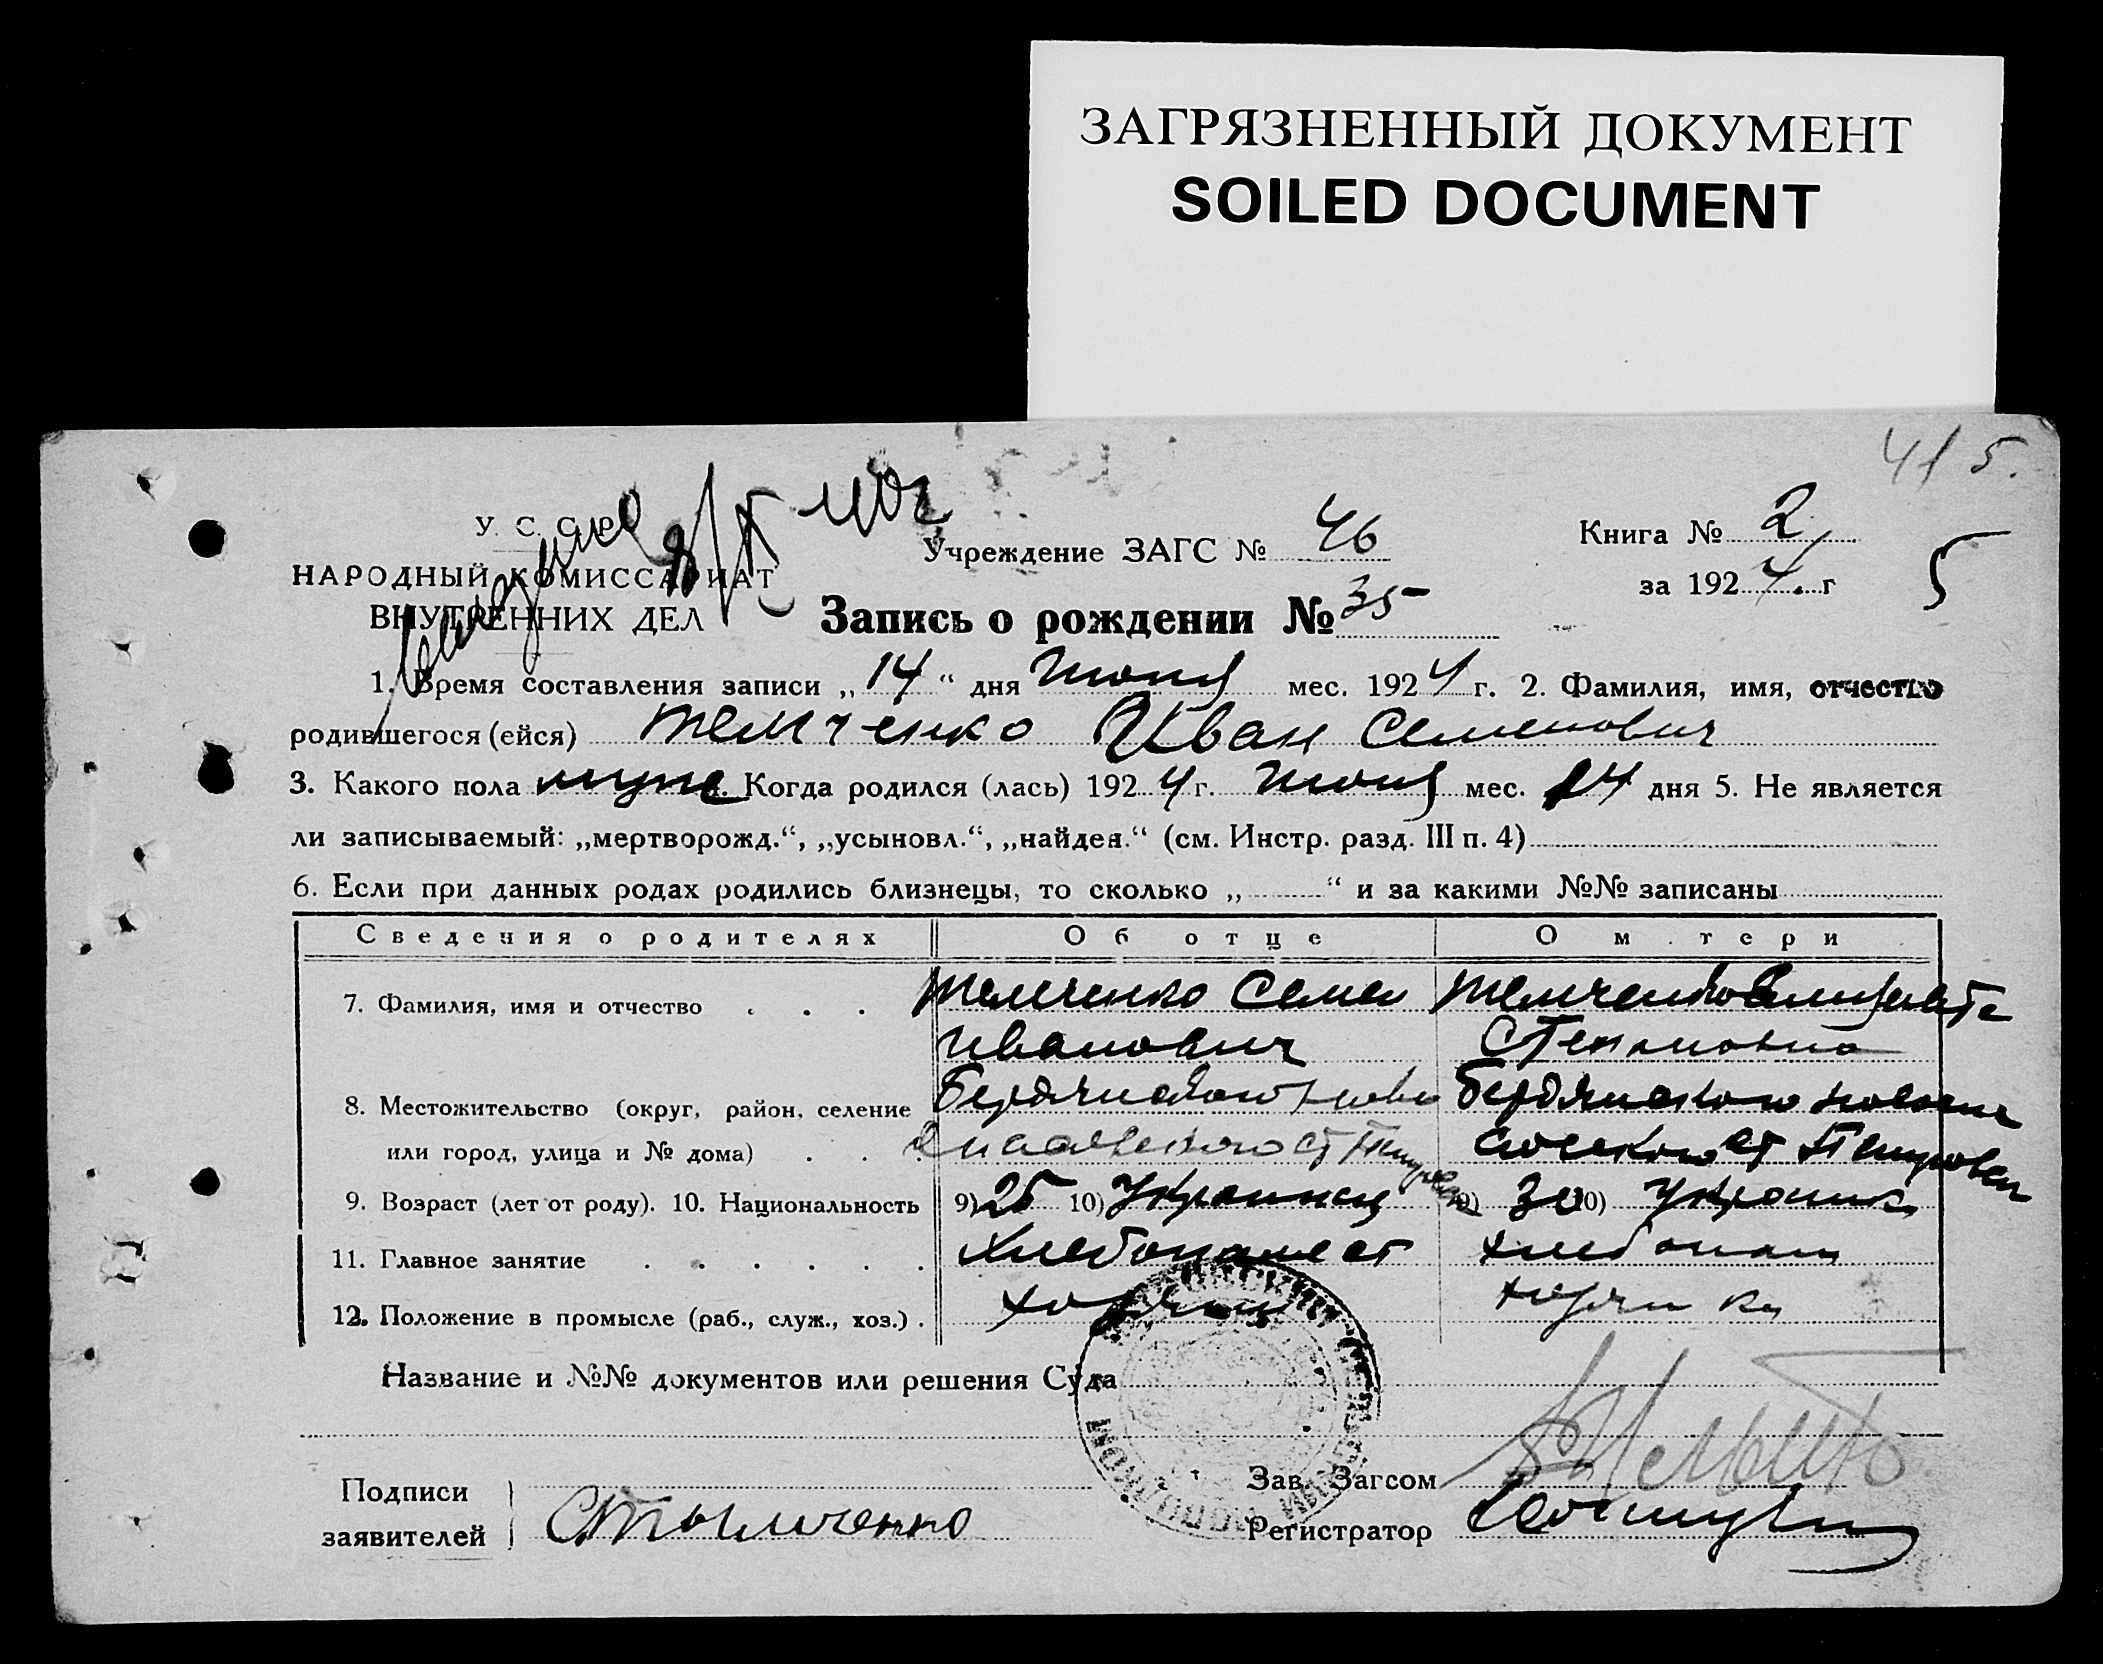 ЗАГРЯЗНЕННЫЙ ДОКУМЕНТ
SOILED DOCUMENT
41 5.
У. С. С. Р.
НАРОДНЫЙ КОМИССАРИАТ
ВНУТРЕННИХ ДЕЛ
Учреждение ЗАГС № 46
Книга № 2
за 1924 г
5
Запись о рождении № 35
1. Время составления записи „14“ дня Июня мес. 1924 г. 2. Фамилия, имя, отчество
родившегося (ейся) Темченко Иван Семенович
3. Какого пола муж Когда родился (лась) 1924 г. Июня мес. 14 дня 5. Не является
ли записываемый: „мертворожд.“, „усыновл.“, „найден.“ (см. Инстр. разд. III п. 4)
6. Если при данных родах родились близнецы, то сколько „ “ и за какими №№ записаны
Сведения о родителях Об отце О м тери
7. Фамилия, имя и отчество Темченко Семен Темченко Елизавета
Иванович Степановна
8. Местожительство (округ, район, селение Бердянского Бердянского
или город, улица и № дома)
9. Возраст (лет от роду). 10. Национальность 9) 25 10) Украинец 9) 30 10) Украинк
11. Главное занятие Хлебопашест хлебопаш
12. Положение в промысле (раб., служ., хоз.) хозяин хозяйка
Название и №№ документов или решения Суда
Подписи
заявителей
Зав. Загсом
Регистратор